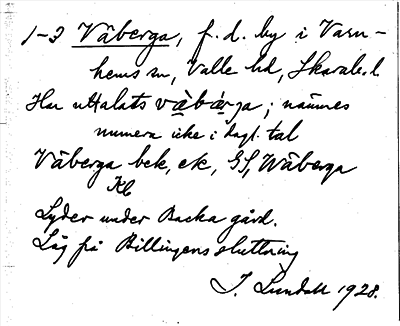 1-3 Våberga, f. d. by i Varn-
hems sn, Valle hd, Skarab. l.
Har uttalats våbärga; nämnes
numera icke i dagl. tal
Våberga bek, ek, GS, Wåberga
Kb
Lyder under Backa gård.
Låg på Billingens sluttning
J. Lundahl 1928.